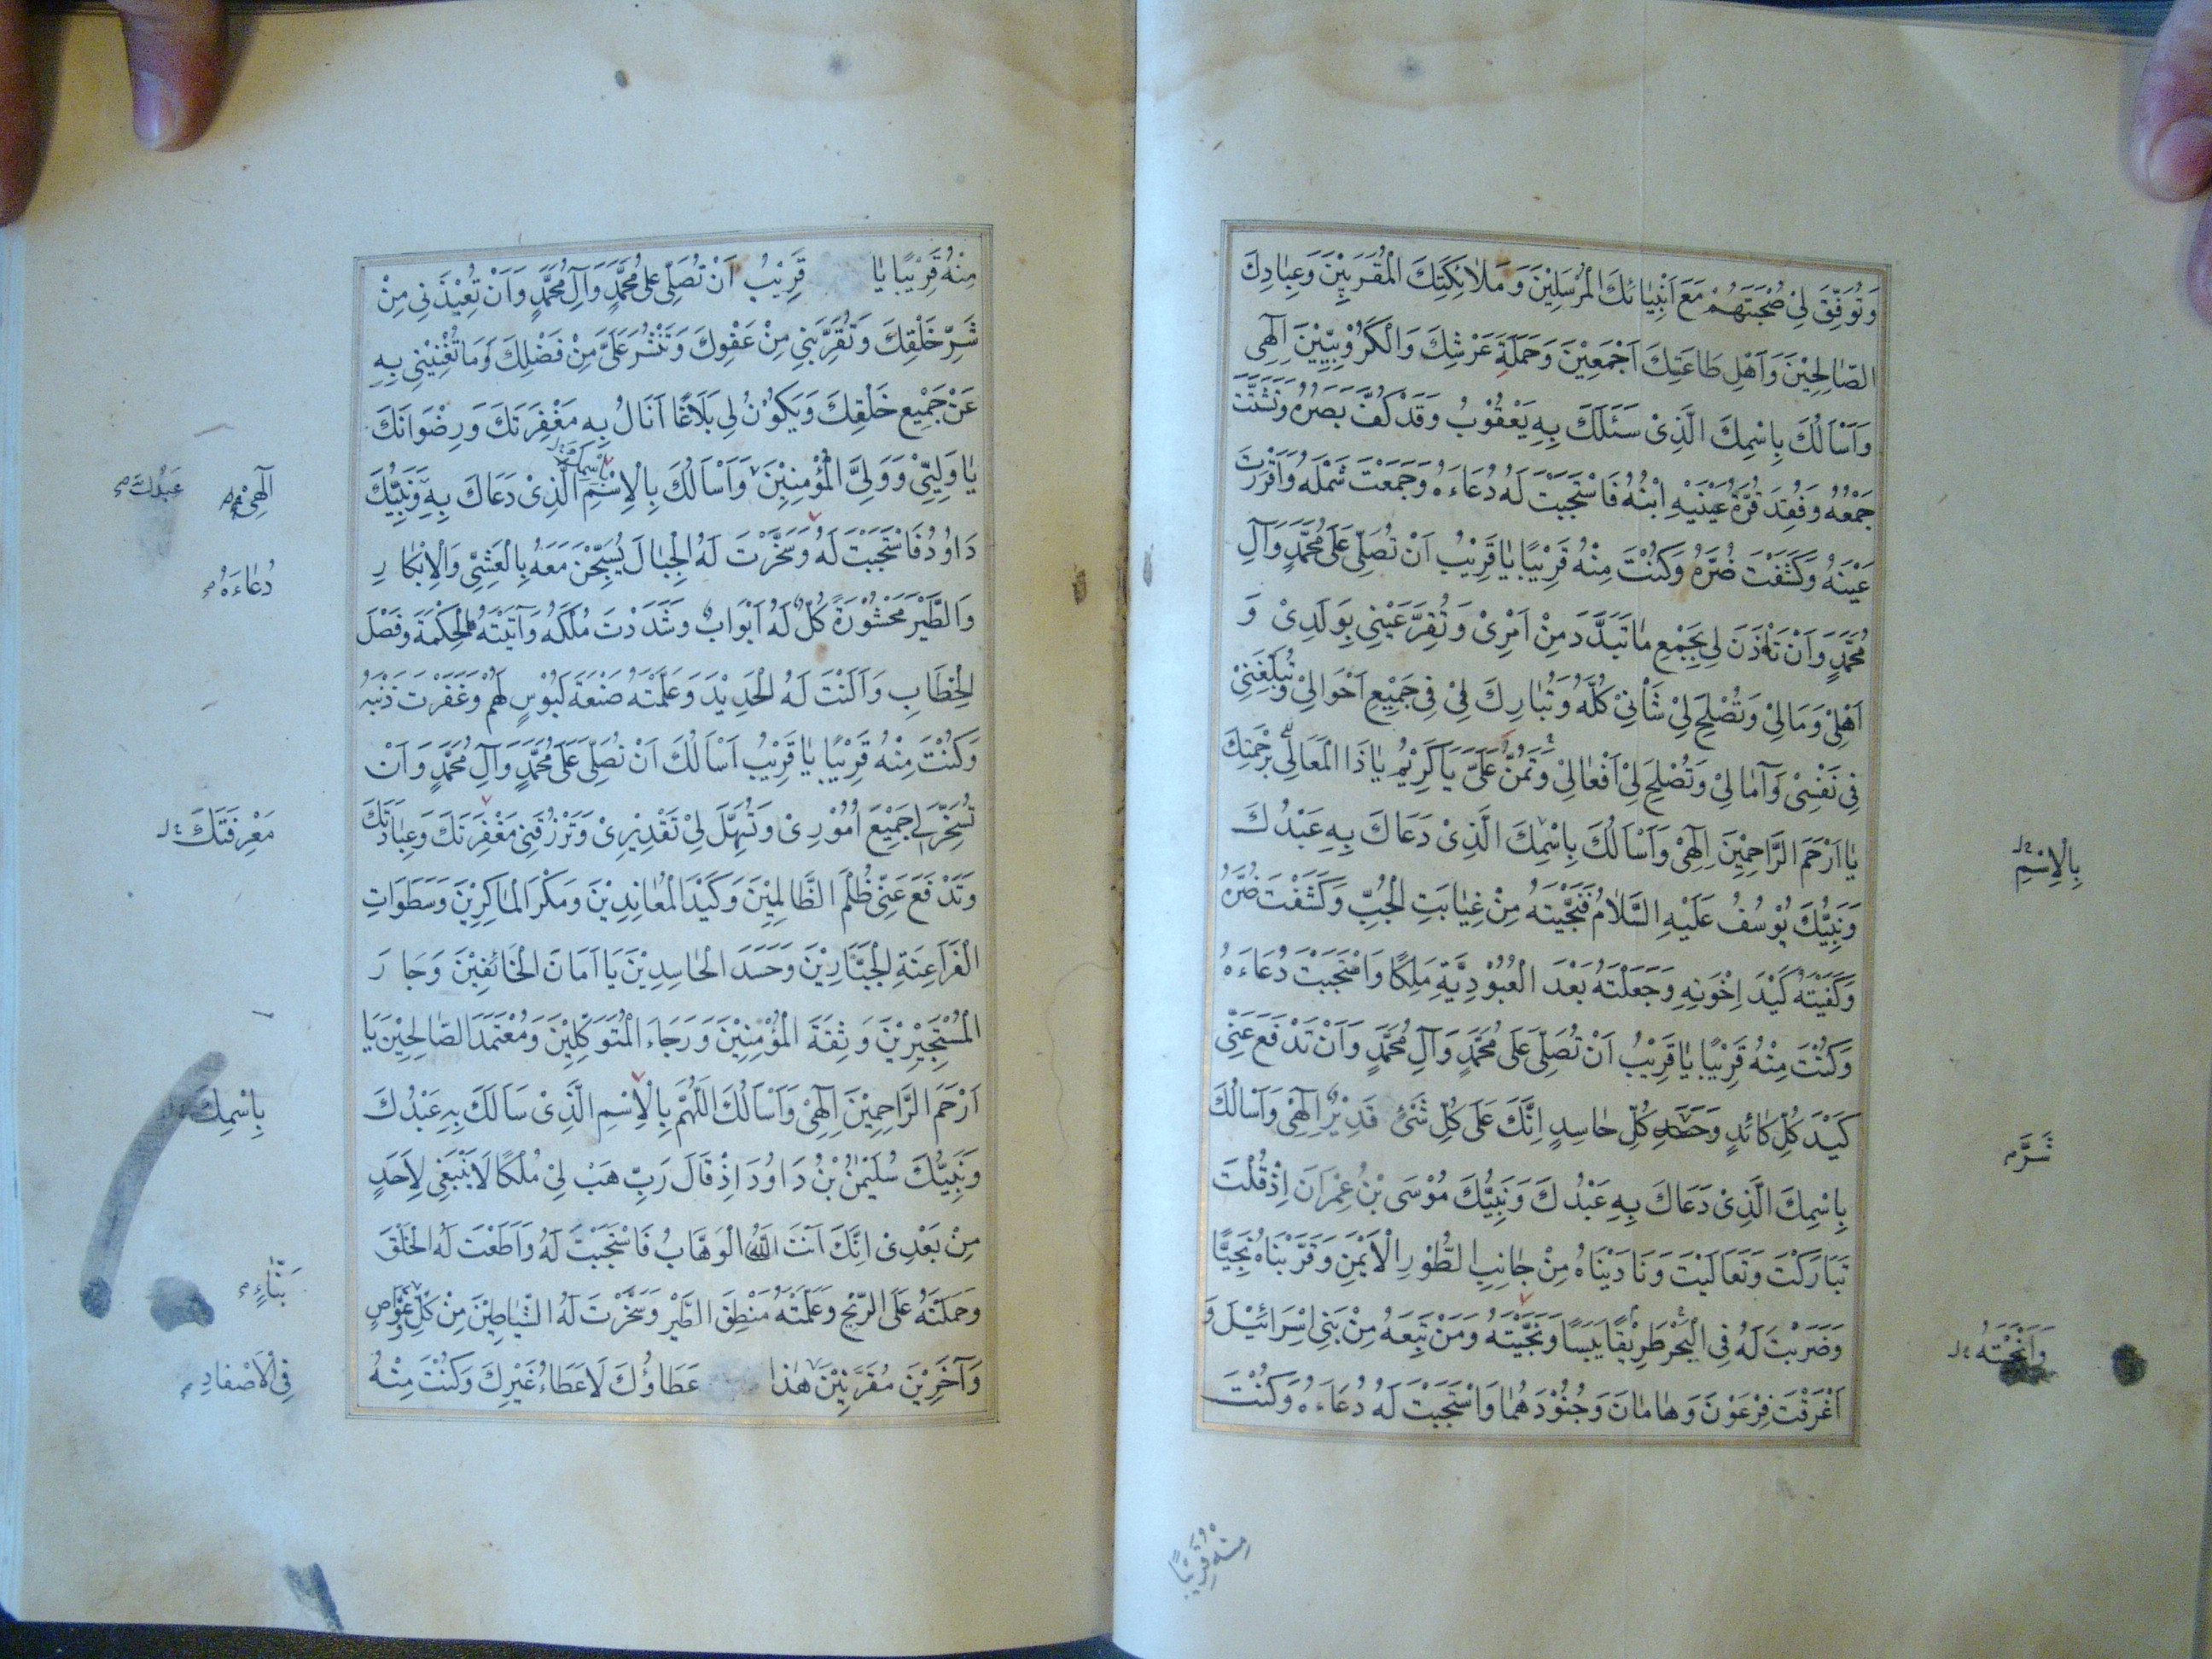 وَتُوَفِّقَ لِيْ صُحْبَتَهُمْ مَعَ اَنْبِيٰائِكَ الْمُرْسَلِيْنَ وَ مَلٰائِكَتِكَ الْمُقَرَّبِيْنَ وَعِبٰادِكَ
الصّٰالِحِيْنَ وَ اَهْلِ طَاعَتِكَ اَجْمَعِيْنَ وَحَمَلَةِ عَرْشِكَ وَالْكَرُّوْبِيّيْنَ اِلٰهِى
وَ اَسْاَلُكَ بِاسْمِكَ الَّذِىْ سَئَلَكَ بِهِ يَعْقُوْبُ وَقَدْ كُفَّ بَصَرُهُ وَتَشَتَّتَ
جَمْعُهُ وَفُقِدَ قُرَّةُ عَيْنَيْهِ ابْنُهُ فَاسْتَجَبْتَ لَهُ دُعَاءَهُ وَجَمَعْتَ شَمْلَهُ وَاَقْرَرْتَ
عَيْنَهُ وَكَشَفْتَ ضُرَّهُ وَكُنْتَ مِنْهُ قَرِيْبًا يٰا قَرِيْبُ اَنْ تُصَلِّىَ عَلَى مُحَمَّدٍ وَآلِ
مُحَمَّدٍ وَ اَنْ تَاْذَنَ لِى بِجَمْعِ مٰا تَبَدَّدَ مِنْ اَمْرِىْ وَ تُقِرَّ عَيْنِى بِوَلَدِىْ وَ
اَهْلِىْ وَ مَالِىْ وَ تُصْلِحَ لِىْ شَأْنِىْ كُلَّهُ وَ تُبٰارِكَ لِىْ فِى جَمِيْعِ اَحْوَالِىْ وَتُبَلِّغَنِىْ
فِى نَفْسِىْ وَ آمٰالِىْ وَ تُصْلِحَ لِىْ اَفْعٰالِىْ وَ تَمُنَّ عَلَىَّ يَا كَرِيْمُ يٰا ذَا الْمَعَالِى بِرَحْمَتِكَ
يٰا اَرْحَمَ الرَّاحِمِيْنَ اِلٰهِىْ وَ اَسْاَلُكَ بِاسْمِكَ الَّذِىْ دَعَاكَ بِهِ عَبْدُكَ
بِالْاِسْمِ
وَنَبِيُّكَ يُوْسُفُ عَلَيْهِ السَّلَامُ فَنَجَّيْتَهُ مِنْ غِيٰابَتِ الْجُبِّ وَكَشَفْتَ ضُرَّهُ
وَكَفَيْتَهُ كَيْدَ اِخْوَتِهِ وَجَعَلْتَهُ بَعْدَ الْعُبُوْدِيَّةِ مَلِكًا وَاسْتَجَبْتَ دُعَاءَهُ
وَكُنْتَ مِنْهُ قَرِيْبًا يٰا قَرِيْبُ اَنْ تُصَلِّىَ عَلَى مُحَمَّدٍ وَآلِ مُحَمَّدٍ وَاَنْ تَدْفَعَ عَنِّى
كَيْدَ كُلِّ كٰائِدٍ وَحَسَدِ كُلِّ حٰاسِدٍ اِنَّكَ عَلَى كُلِّ شَىْءٍ قَدِيْرٌ اِلٰهِىْ وَ اَسْاَلُكَ
شَرَّ
بِاسْمِكَ الَّذِىْ دَعَاكَ بِهِ عَبْدُكَ وَ نَبِيُّكَ مُوْسَى بْنُ عِمْرَانَ اِذْ قُلْتَ
تَبَارَكْتَ وَتَعَالَيْتَ وَنَادَيْنَاهُ مِنْ جَانِبِ الطُّوْرِ الْاَيْمَنِ وَقَرَّبْنَاهُ نَجِيًّا
وَضَرَبْتَ لَهُ فِى الْبَحْرِ طَرِيْقًا يَبَسًا وَنَجَّيْتَهُ وَمَنْ تَبِعَهُ مِنْ بَنِى اِسْرَائِيْلَ وَ
وَاَنْجَيْتَهُ
اَغْرَقْتَ فِرْعَوْنَ وَهٰامٰانَ وَجُنُوْدَهُمٰا وَاسْتَجَبْتَ لَهُ دُعَاءَهُ وَكُنْتَ
مِنْهُ قَرِيْبًا
مِنْهُ قَرِيْبًا يٰا قَرِيْبُ اَنْ تُصَلِّىَ عَلَى مُحَمَّدٍ وَآلِ مُحَمَّدٍ وَ اَنْ تُعِيْذَنِى مِنْ
شَرِّ خَلْقِكَ وَ تُقَرِّبَنِى مِنْ عَفْوِكَ وَ تَنْشُرَ عَلَىَّ مِنْ فَضْلِكَ وَ مَا تُغْنِيْنِى بِهِ
عَنْ جَمِيْعِ خَلْقِكَ وَ يَكُوْنُ لِى بَلَاغًا اَنَالُ بِهِ مَغْفِرَتَكَ وَ رِضْوَانَكَ
يٰا وَلِيِّىْ وَ وَلِىَّ الْمُؤْمِنِيْنَ وَ اَسْاَلُكَ بِالْاِسْمِ الَّذِىْ دَعَاكَ بِهِ وَنَبِيُّكَ
بِاسْمِكَ
اِلٰهِىْ
عَبْدُكَ
دَاوُدُ فَاسْتَجَبْتَ لَهُ وَسَخَّرْتَ لَهُ الْجِبٰالَ يُسَبِّحْنَ مَعَهُ بِالْعَشِىِّ وَالْاِبْكَارِ
دُعٰاءَهُ
وَالطَّيْرَ مَحْشُوْرَةً كُلٌّ لَهُ اَوَّابٌ وَشَدَدْتَ مُلْكَهُ وَ آتَيْتَهُ الْحِكْمَةَ وَفَصْلَ
الْخِطَابِ وَ اَلَنْتَ لَهُ الْحَدِيْدَ وَعَلَّمْتَهُ صَنْعَةَ لَبُوْسٍ لَهُمْ وَغَفَرْتَ ذَنْبَهُ
وَكُنْتَ مِنْهُ قَرِيْبًا يٰا قَرِيْبُ اَسْاَلُكَ اَنْ تُصَلِّىَ عَلَى مُحَمَّدٍ وَ آلِ مُحَمَّدٍ وَ اَنْ
تُسَخِّرَ لِى جَمِيْعَ اُمُوْرِىْ وَ تُسَهِّلَ لِىْ تَقْدِيْرِىْ وَ تَرْزُقَنِى مَغْفِرَتَكَ وَ عِبٰادَتَكَ
مَعْرِفَتَكَ
وَ تَدْفَعَ عَنِّى ظُلْمَ الظَّالِمِيْنَ وَكَيْدَ الْمُعٰانِدِيْنَ وَ مَكْرَ الْمَاكِرِيْنَ وَ سَطَوَاتِ
الْفَرَاعِنَةِ الْجَبَّارِيْنَ وَحَسَدَ الْحٰاسِدِيْنَ يَا اَمَانَ الْخَائِفِيْنَ وَ جَارَ
الْمُسْتَجِيْرِيْنَ وَ ثِقَةَ الْمُؤْمِنِيْنَ وَ رَجَاءَ الْمُتَوَكِّلِيْنَ وَ مُعْتَمَدَ الصَّالِحِيْنَ يَا
اَرْحَمَ الرَّاحِمِيْنَ اِلٰهِىْ وَ اَسْاَلُكَ اللّٰهُمَّ بِالْاِسْمِ الَّذِىْ سَاَلَكَ بِهِ عَبْدُكَ
بِاسْمِكَ
وَ نَبِيُّكَ سُلَيْمٰنُ بْنُ دَاوُدَ اِذْ قَالَ رَبِّ هَبْ لِىْ مُلْكًا لَا يَنْبَغِى لِاَحَدٍ
مِنْ بَعْدِىْ اِنَّكَ اَنْتَ اللّٰهُ الْوَهَّابُ فَاسْتَجَبْتَ لَهُ وَ اَطَعْتَ لَهُ الْخَلْقَ
وَحَمَلْتَهُ عَلَى الرِّيْحِ وَ عَلَّمْتَهُ مَنْطِقَ الطَّيْرِ وَ سَخَّرْتَ لَهُ الشَّيٰاطِيْنَ مِنْ كُلِّ غَوَّاصٍ
بَنّٰاءٍ
وَ آخَرِيْنَ مُقَرَّنِيْنَ هٰذٰا عَطَاؤُكَ لَا عَطَاءُ غَيْرِكَ وَكُنْتَ مِنْهُ
فِى الْاَصْفَادِ